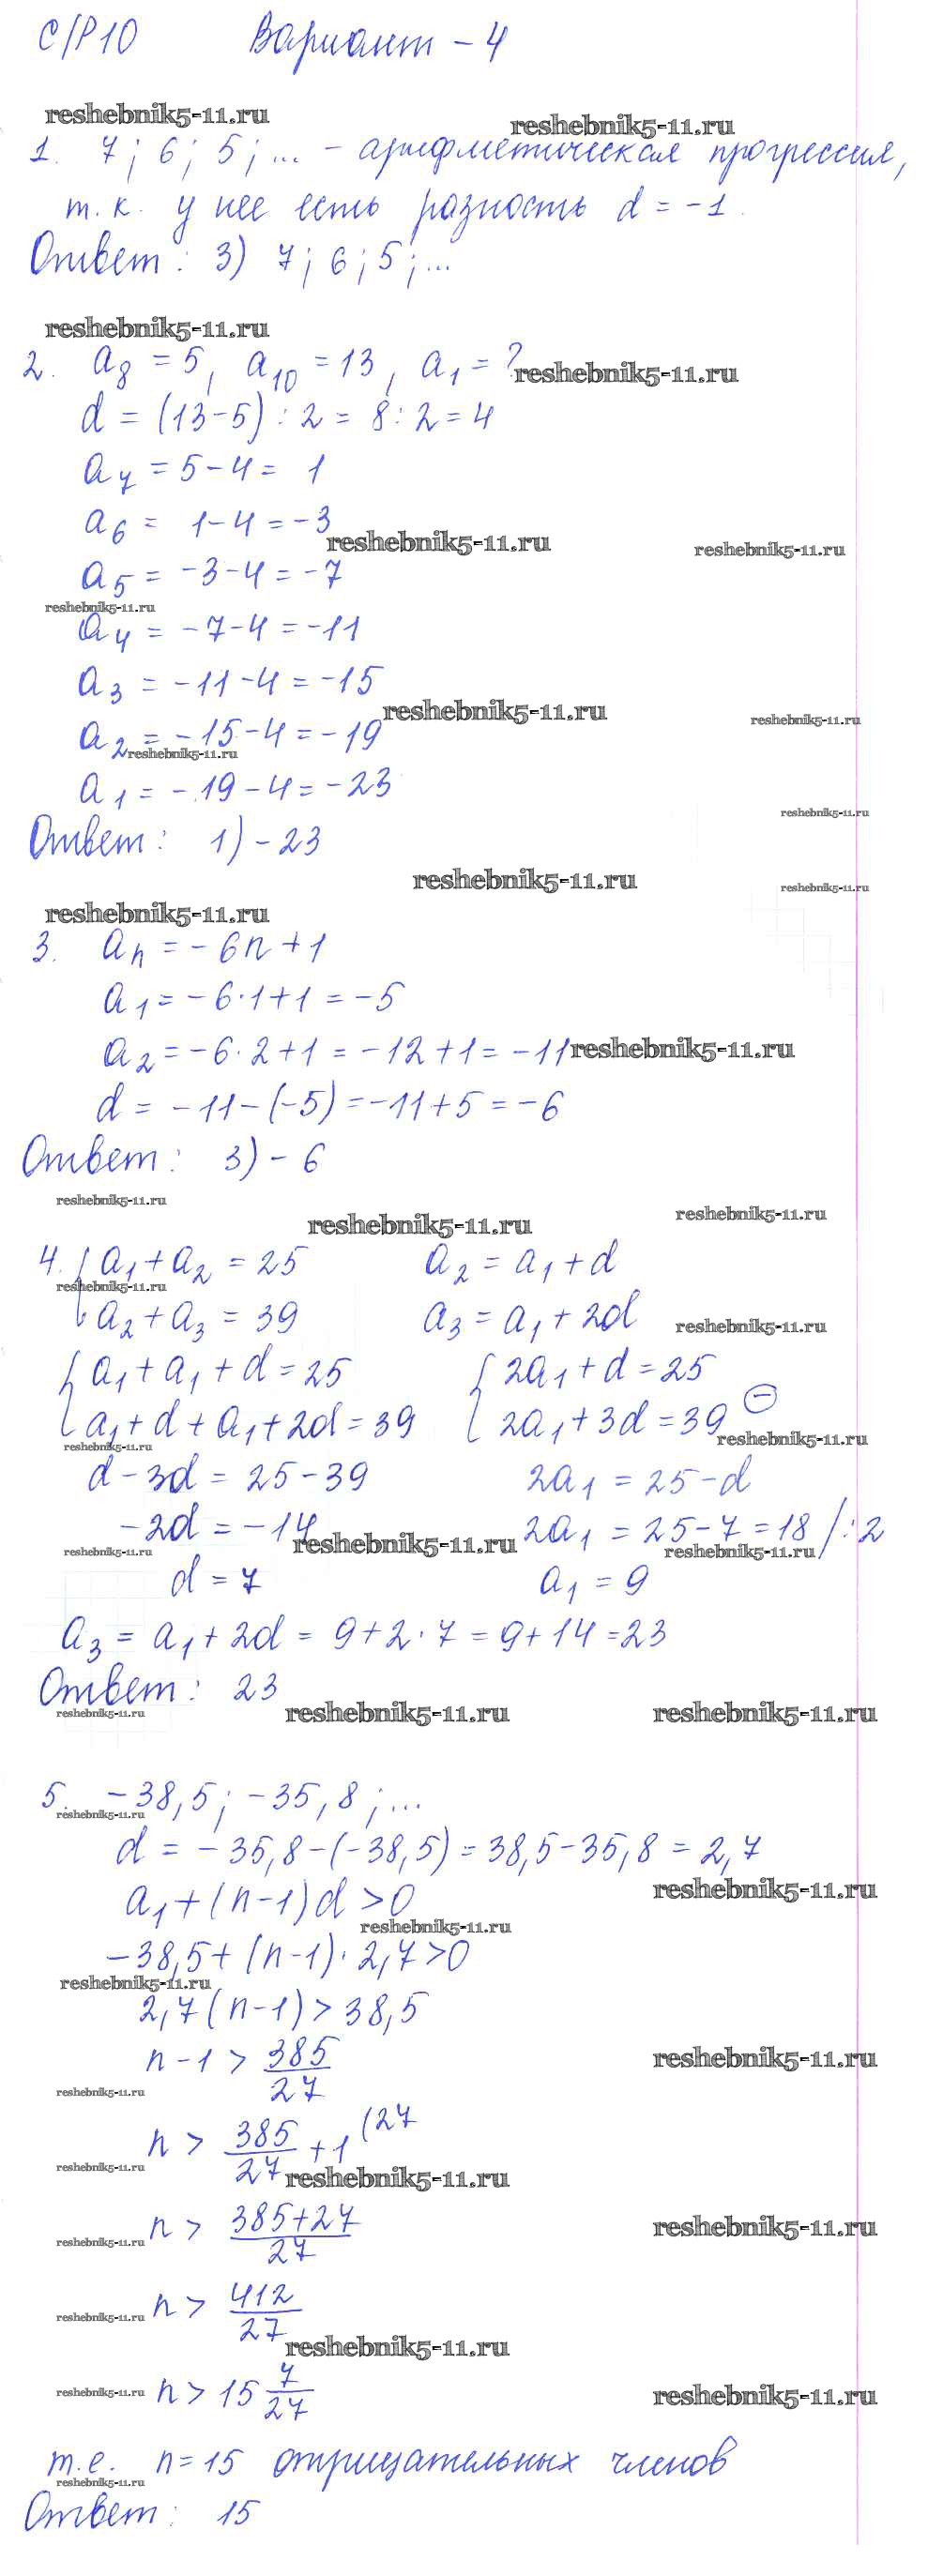 С/Р10 Вариант - 4
reshebnik5-11.ru reshebnik5-11.ru
1. 7; 6; 5; ... - арифметическая прогрессия,
т.к. у нее есть разность d = -1.
Ответ: 3) 7; 6; 5; ...
reshebnik5-11.ru
2. a₈ = 5, a₁₀ = 13, a₁ = ? reshebnik5-11.ru
d = (13-5) : 2 = 8 : 2 = 4
a₇ = 5 - 4 = 1
a₆ = 1 - 4 = -3
reshebnik5-11.ru reshebnik5-11.ru
a₅ = -3 - 4 = -7
reshebnik5-11.ru
a₄ = -7 - 4 = -11
a₃ = -11 - 4 = -15
reshebnik5-11.ru reshebnik5-11.ru
a₂ = -15 - 4 = -19
reshebnik5-11.ru
a₁ = -19 - 4 = -23
reshebnik5-11.ru
Ответ: 1) -23
reshebnik5-11.ru reshebnik5-11.ru
reshebnik5-11.ru
3. aₙ = -6n + 1
a₁ = -6·1 + 1 = -5
a₂ = -6·2 + 1 = -12 + 1 = -11 reshebnik5-11.ru
d = -11 - (-5) = -11 + 5 = -6
Ответ: 3) -6
reshebnik5-11.ru reshebnik5-11.ru reshebnik5-11.ru
4. { a₁ + a₂ = 25 a₂ = a₁ + d
reshebnik5-11.ru
a₂ + a₃ = 39 a₃ = a₁ + 2d reshebnik5-11.ru
{ a₁ + a₁ + d = 25 { 2a₁ + d = 25
a₁ + d + a₁ + 2d = 39 2a₁ + 3d = 39 ⊖
reshebnik5-11.ru reshebnik5-11.ru
d - 3d = 25 - 39 2a₁ = 25 - d
-2d = -14 2a₁ = 25 - 7 = 18 /:2
reshebnik5-11.ru reshebnik5-11.ru reshebnik5-11.ru
d = 7 a₁ = 9
a₃ = a₁ + 2d = 9 + 2·7 = 9 + 14 = 23
Ответ: 23
reshebnik5-11.ru reshebnik5-11.ru reshebnik5-11.ru
5. -38,5; -35,8; ...
reshebnik5-11.ru
d = -35,8 - (-38,5) = 38,5 - 35,8 = 2,7
a₁ + (n-1)d > 0 reshebnik5-11.ru
reshebnik5-11.ru
-38,5 + (n-1)·2,7 > 0
reshebnik5-11.ru
2,7(n-1) > 38,5
n - 1 > 385/27 reshebnik5-11.ru
reshebnik5-11.ru
n > 385/27 + 1 (27
reshebnik5-11.ru reshebnik5-11.ru
n > (385+27)/27 reshebnik5-11.ru
reshebnik5-11.ru
n > 412/27
reshebnik5-11.ru reshebnik5-11.ru
reshebnik5-11.ru n > 15 7/27 reshebnik5-11.ru
т.е. n = 15 отрицательных членов
reshebnik5-11.ru
Ответ: 15